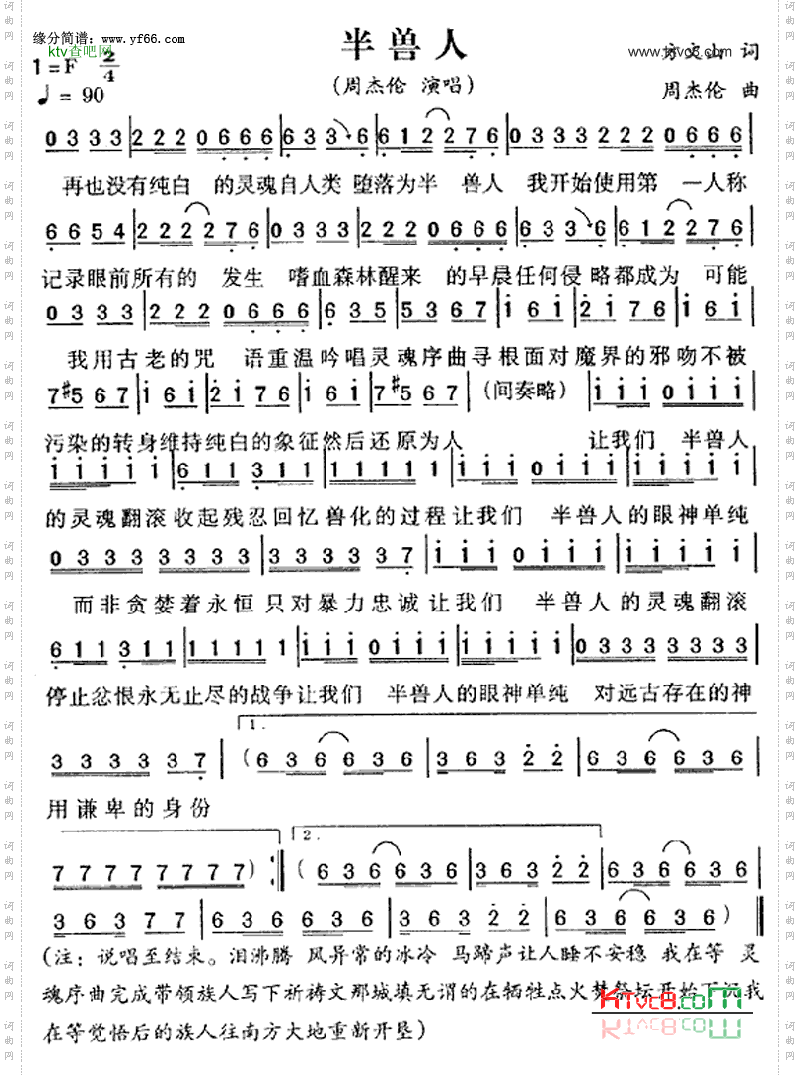 缘分简谱：www.yf66.com
ktv查吧网
半兽人
www.ktvc8.com
词
1=F 2/4
(周杰伦 演唱)
♩= 90
周杰伦 曲
0 3 3 3 | 2 2 2 0 6 6 6 | 6 3 3 | 6 1 2 2 7 6 | 0 3 3 3 2 2 2 | 0 6 6 6
再也没有纯白 的灵魂自人类 堕落为半 兽人 我开始使用第 一人称
6 6 5 4 | 2 2 2 2 7 6 | 0 3 3 3 | 2 2 2 0 6 6 6 | 6 3 3 | 6 1 2 2 7 6
记录眼前所有的 发生 嗜血森林醒来 的早晨任何侵 略都成为 可能
0 3 3 3 | 2 2 2 0 6 6 6 | 6 3 5 | 5 3 6 7 | i 6 i | 2 i 7 6 | i 6 i
我用古老的咒 语重温吟唱灵魂序曲寻根面对魔界的邪吻不被
7 #5 6 7 | i 6 i | 2 i 7 6 | i 6 i | 7 #5 6 7 | (间奏略) | i i i 0 i i i
污染的转身维持纯白的象征然后还原为人 让我们 半兽人
i i i i i | 6 1 1 3 1 1 | 1 1 1 1 1 1 1 | i i i 0 i i i | i i i i i
的灵魂翻滚收起残忍回忆兽化的过程让我们 半兽人的眼神单纯
0 3 3 3 3 3 3 | 3 3 3 3 3 7 | i i i 0 i i i | i i i i i
而非贪婪着永恒只对暴力忠诚让我们 半兽人的灵魂翻滚
6 1 1 3 1 1 | 1 1 1 1 1 | i i i 0 i i i | i i i i i | 0 3 3 3 3 3 3
停止忿恨永无止尽的战争让我们 半兽人的眼神单纯 对远古存在的神
1.
3 3 3 3 3 7 | (6 3 6 3 6 6 | 3 6 3 2 2 | 6 3 6 3 6 6 |
用谦卑的身份
2.
7 7 7 7 7 7 7 7) :| (6 3 6 3 6 6 | 3 6 3 2 2 | 6 3 6 3 6 6
3 6 3 7 7 | 6 3 6 3 6 6 | 3 6 3 2 2 | 6 3 6 3 6 6) ‖
(注：说唱至结束。泪沸腾 风异常的冰冷 马蹄声让人睡不安稳 我在等 灵
魂序曲完成带领族人写下祈祷文那城填无谓的在牺牲点火梦祭坛开始下沉我
KTvc8.com
在等觉悟后的族人往南方大地重新开垦)
词曲网